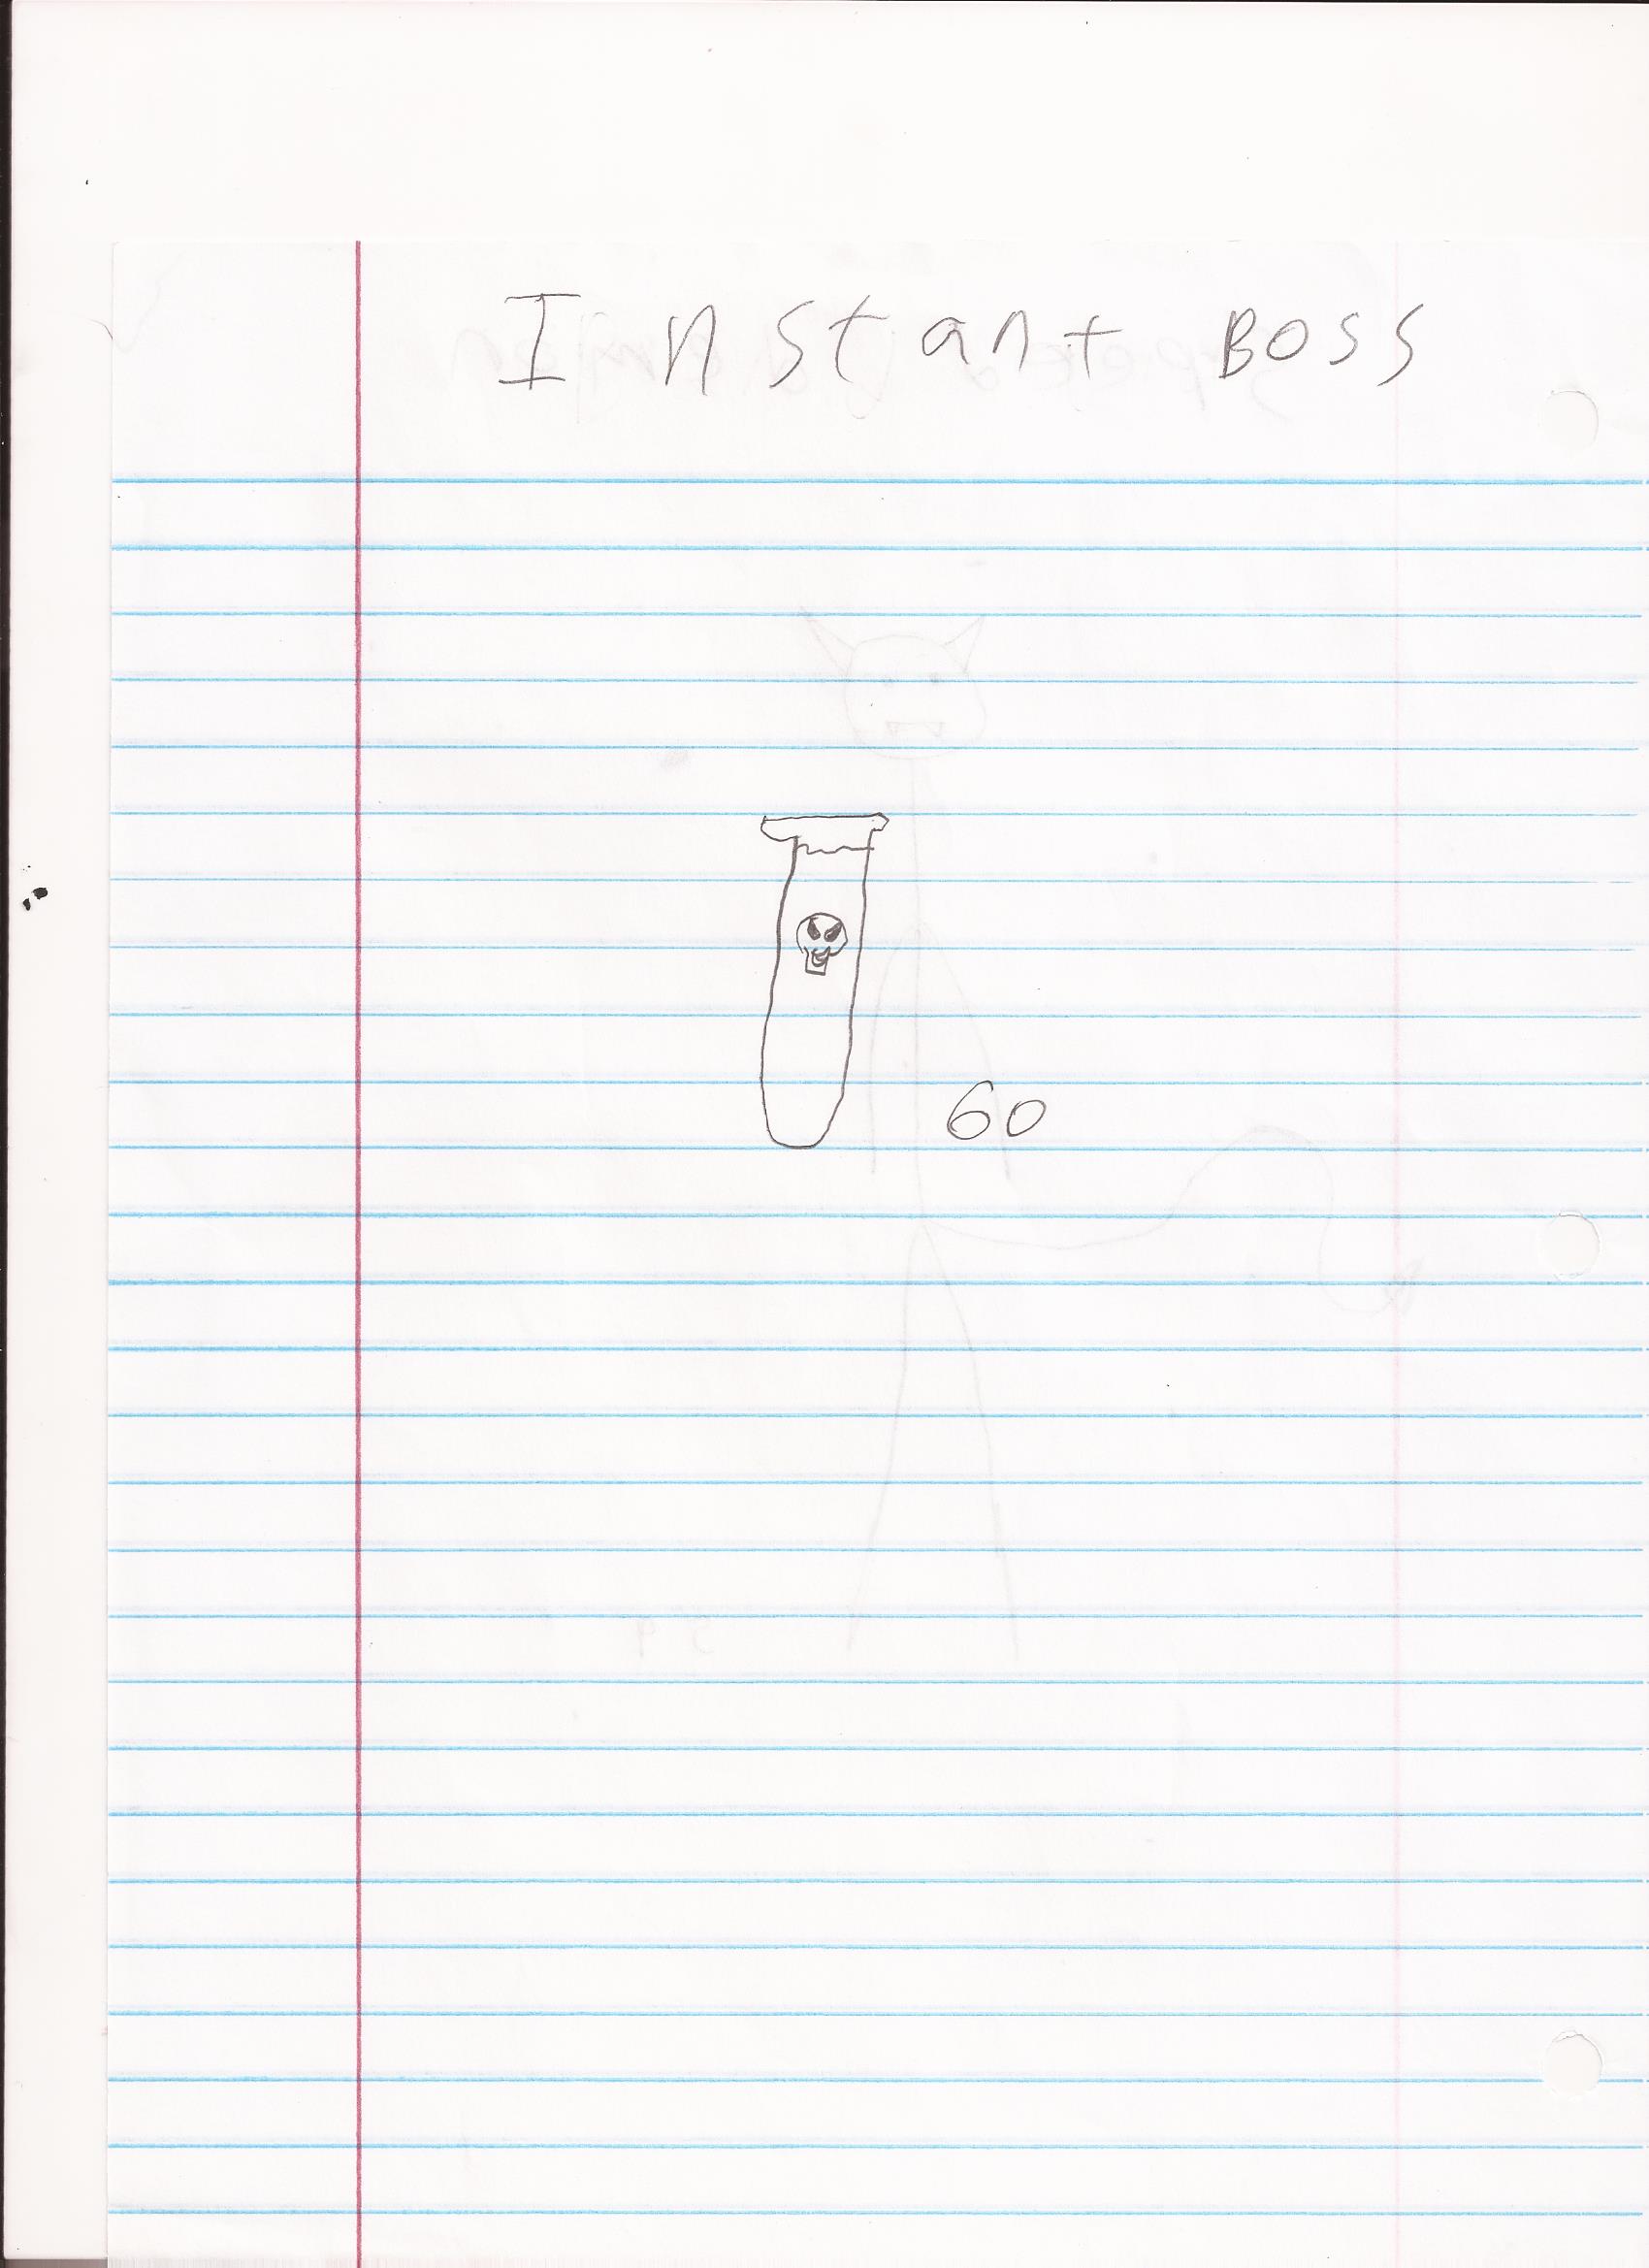 Instant Boss
60